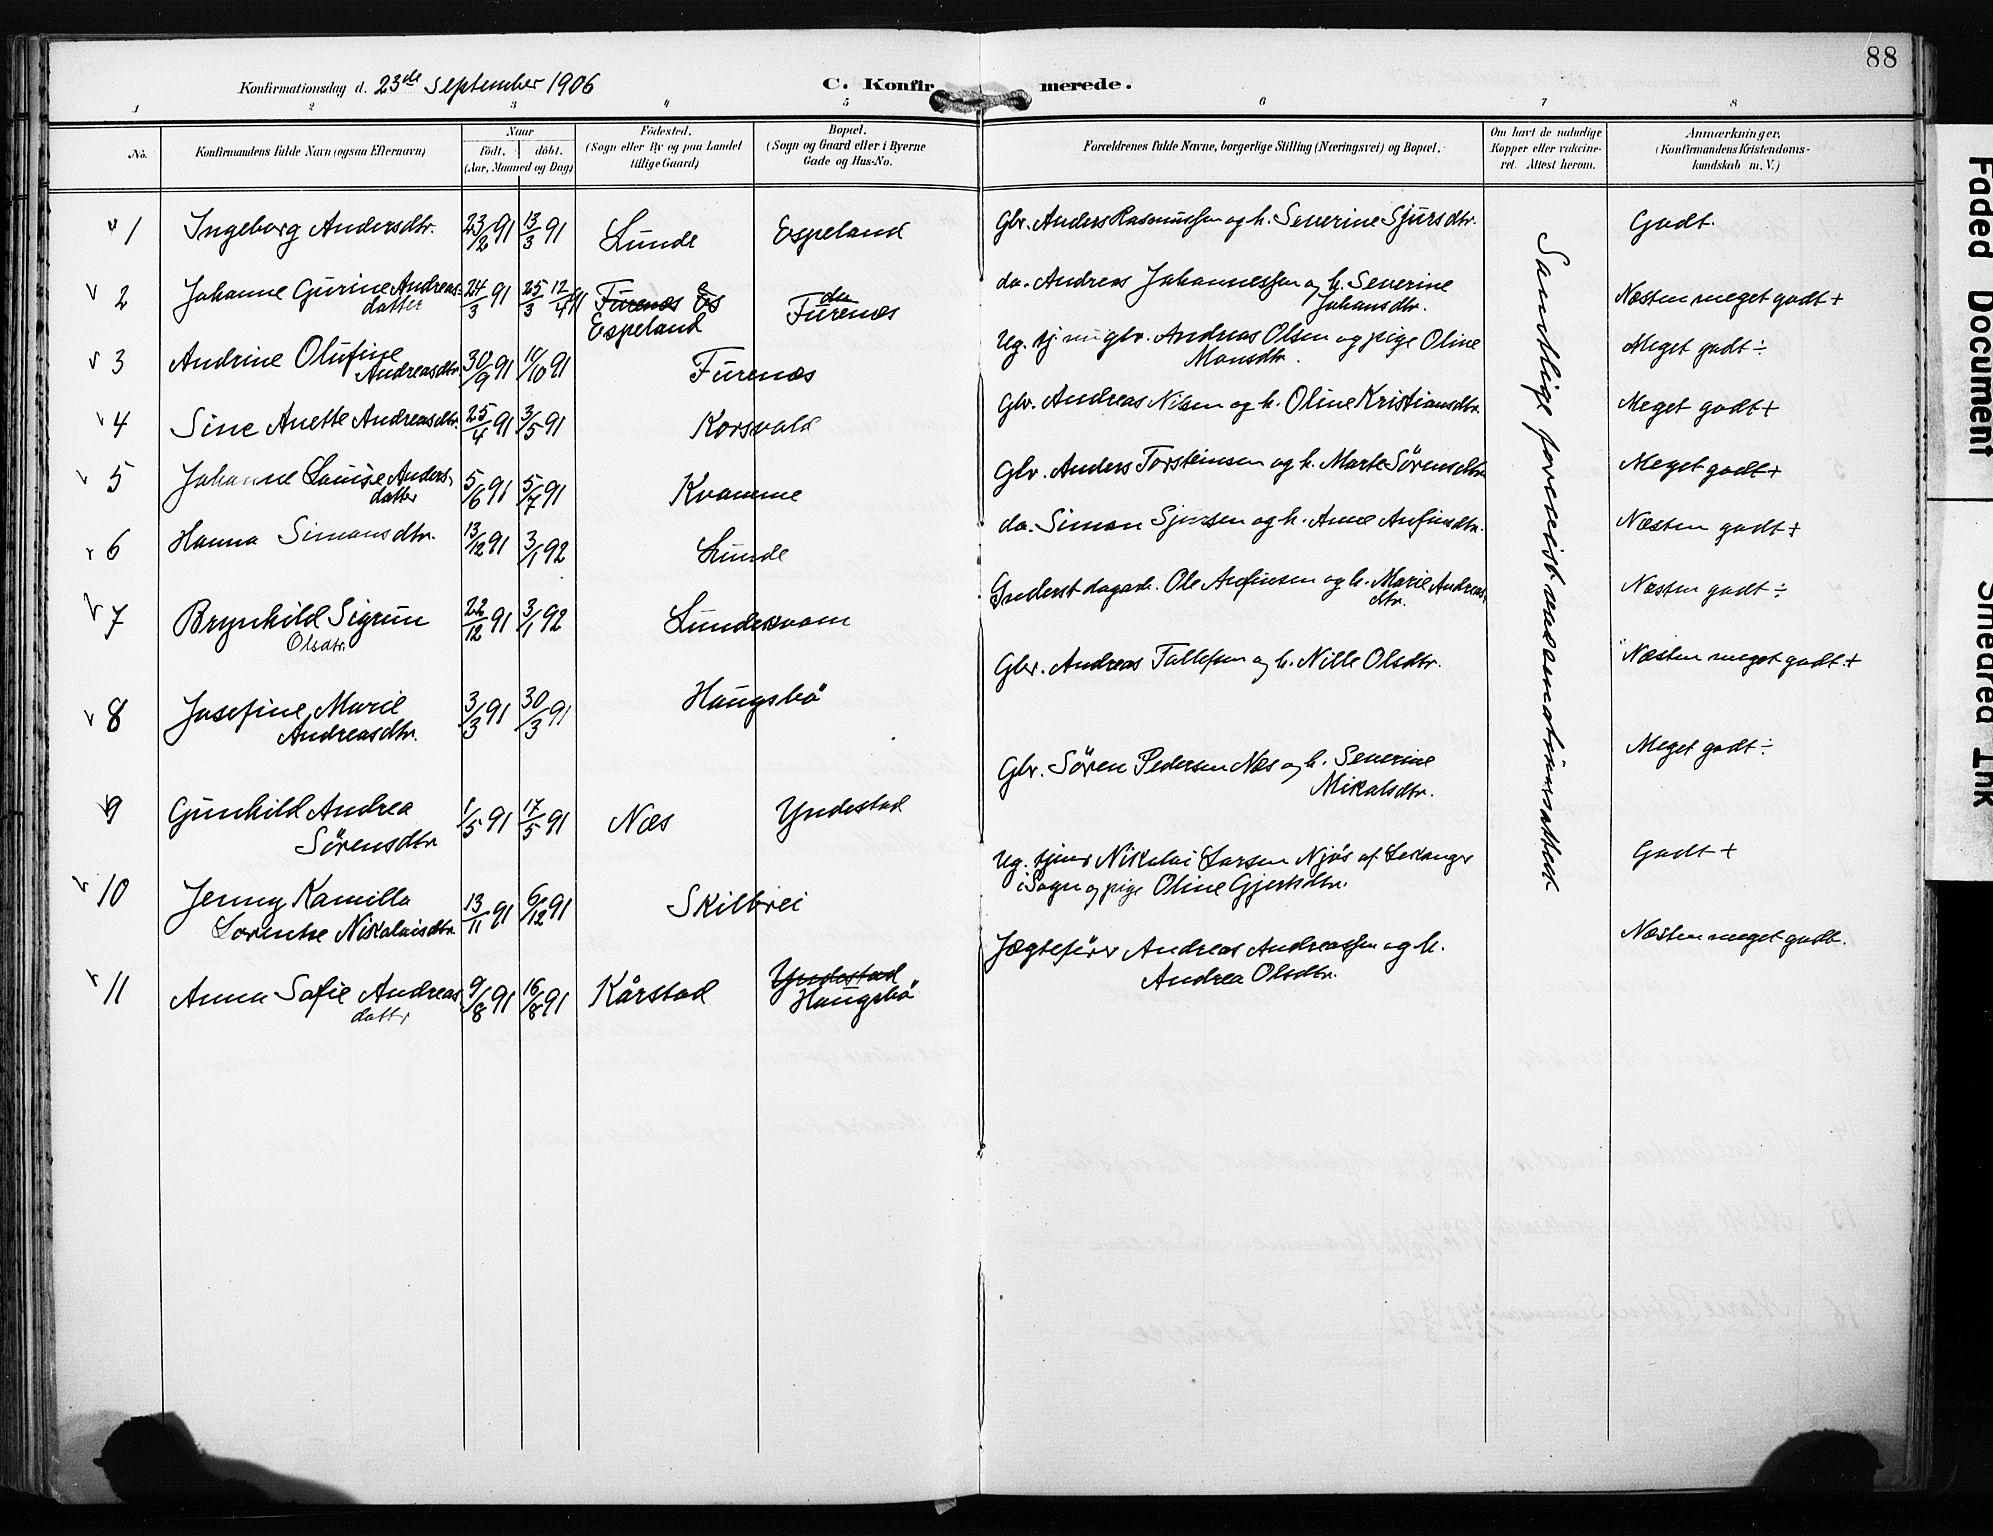 88
Konfirmationsdag d. 23de September 1906
C. Konfirmerede.
1 2 3 4 5 6 7 8
No.
Konfirmandens fulde Navn (ogsaa Efternavn)
Naar
født. døbt.
(Aar, Maaned og Dag)
Fødested.
(Sogn eller By og paa Landet
tillige Gaard)
Bopæl.
(Sogn og Gaard eller i Byerne
Gade og Hus-No.
Forældrenes fulde Navne, borgerlige Stilling (Næringsvei) og Bopæl.
Om havt de naturlige
Kopper eller vakcine-
ret. Attest herom.
Anmærkninger.
(Konfirmandens Kristendoms-
kundskab m. V.)
1 Ingeborg Andersdtr. 23/2 91 13/3 91 Lunde Espeland Gbr. Anders Rasmussen og h. Severine Sjursdtr. Godt.
2 Johanne Gurine Andreas-
datter 24/3 91 25/3 12/4 91 Furenes Es
Espeland do
Furenæs do. Andreas Johannessen og h. Severine
Johansdtr. Næsten meget godt +
3 Andrine Olufine
Andreasdtr 30/9 91 11/10 91 Furenæs Ug. tj. gbr. Andreas Olsen og pige Oline
Monsdtr. Meget godt ÷
4 Sine Anette Andreasdtr. 25/4 91 3/5 91 Korsvold Gbr. Andreas Nilsen og h. Oline Kristiansdtr. Meget godt +
5 Johanne Louise Anders-
datter 5/6 91 5/7 91 Kvamme Gbr. Anders Torsteinsen og h. Marte Sørensdtr Meget godt +
6 Hanna Simonsdtr. 13/12 91 3/1 92 Lunde do. Simon Sjursen og h. Anne Anfinsdtr. Næsten godt +
7 Brynhild Sigrun
Olsdtr. 22/12 91 3/1 92 Lundekvam Inderst dagarb. Ole Anfinsen og h. Marie Andreas
dtr. Næsten godt ÷
8 Josefine Marie
Andreasdtr. 3/3 91 30/3 91 Haugsbø Gbr. Andreas Tollefsen og h. Nille Olsdtr. Næsten meget godt +
9 Gunhild Andrea
Sørensdtr 1/5 91 17/5 91 Næs Yndestad Gbr. Søren Pedersen Næs og h. Severine
Mikalsdtr. Meget godt ÷
10 Jenny Kamilla
Lorentse Nikolaisdtr. 13/11 91 6/12 91 Skilbrei Ug. tjener Nikolai Larsen Njøs af Leikanger
i Sogn og pige Oline Gjertsdtr. Godt +
11 Anna Sofie Andreas
datter 9/8 91 16/8 91 Kårstad Yndestad
Haugsbø Jægtefører Andreas Andreassen og h.
Andrea Olsdtr. Næsten meget godt.
Samtlige forevist vaccinationsattest
Faded Document
Smeared Ink